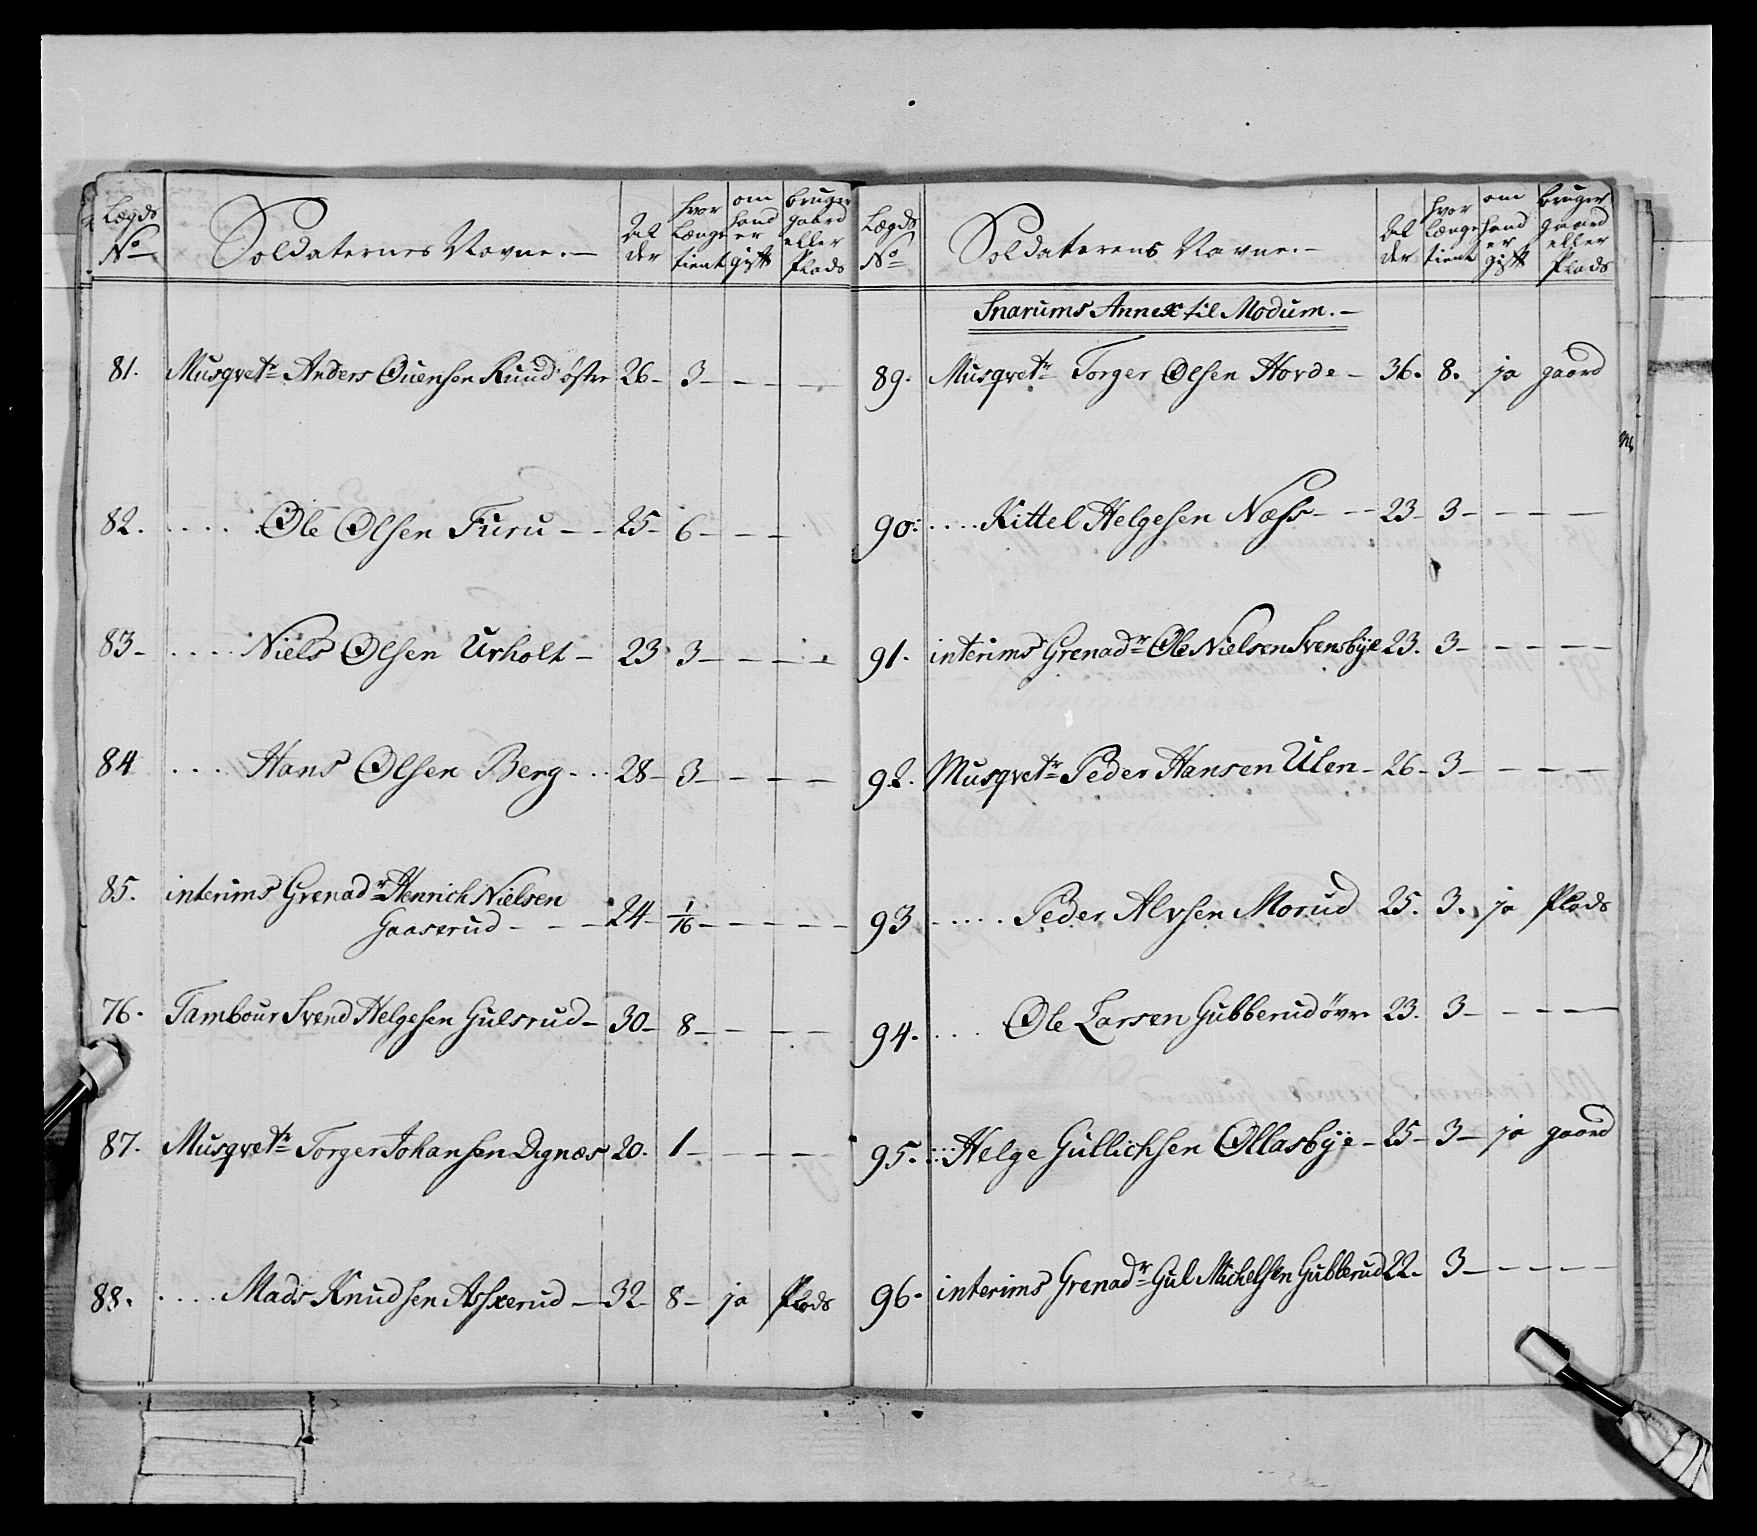 Lægds No Soldaternes Navne.— Al der hvor længe tient om hand er gift bruger gaard eller Plads
81. Musqvetr Anders Ouensen Ruud østre 26- 3- - -
82. .... Ole Olsen Furu - - 25- 6- - -
83- .... Niels Olsen Urholt - 23 3- - - -
84 .... Hans Olsen Berg... 28- 3- - - -
85. interims Grenadr Henrich Nielsen
Gaaserud - - - 24- 1/16 - - - -
76. Tambour Svend Helgesen Gulsrud - 30- 8- - - -
87. Musqvetr Torger Johansen Dignæs 20. 1- - - -
88. .... Mads Knudsen Askerud - 32- 8- ja Plads
Lægds No Soldaterens Navne.— Al der hvor længe tient om hand er gift bruger gaard eller Plads
Snarums Annex til Modum.—
89. Musqvetr Torger Olsen Hovde - 36. 8. ja gaard
90: .... Kittel Helgesen Næss - - - 23- 3- - - -
91. interims Grenadr Ole Nielsen Svensbÿe 23. 3- - - - -
92. Musqvetr Peder Hansen Ulen - 26- 3- - - -
93 ..... Peder Alvsen Morud 25. 3. ja Plads
94. .... Ole Larsen Gubberud øvre 23. 3- - - -
95. .... Helge Gullichsen Ollasbÿe - 25- 3- ja gaard
96. interims Grenadr Gul Michelsen Gubberud 22. 3- - - - -